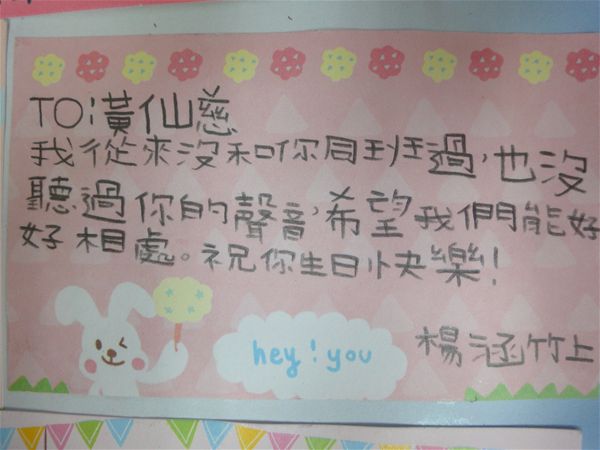 TO潢仙慈
我從來沒和你同班過,也沒
聽過你的聲音,希望我們能好
好相處。祝你生日快樂!
hey!you
楊涵竹上